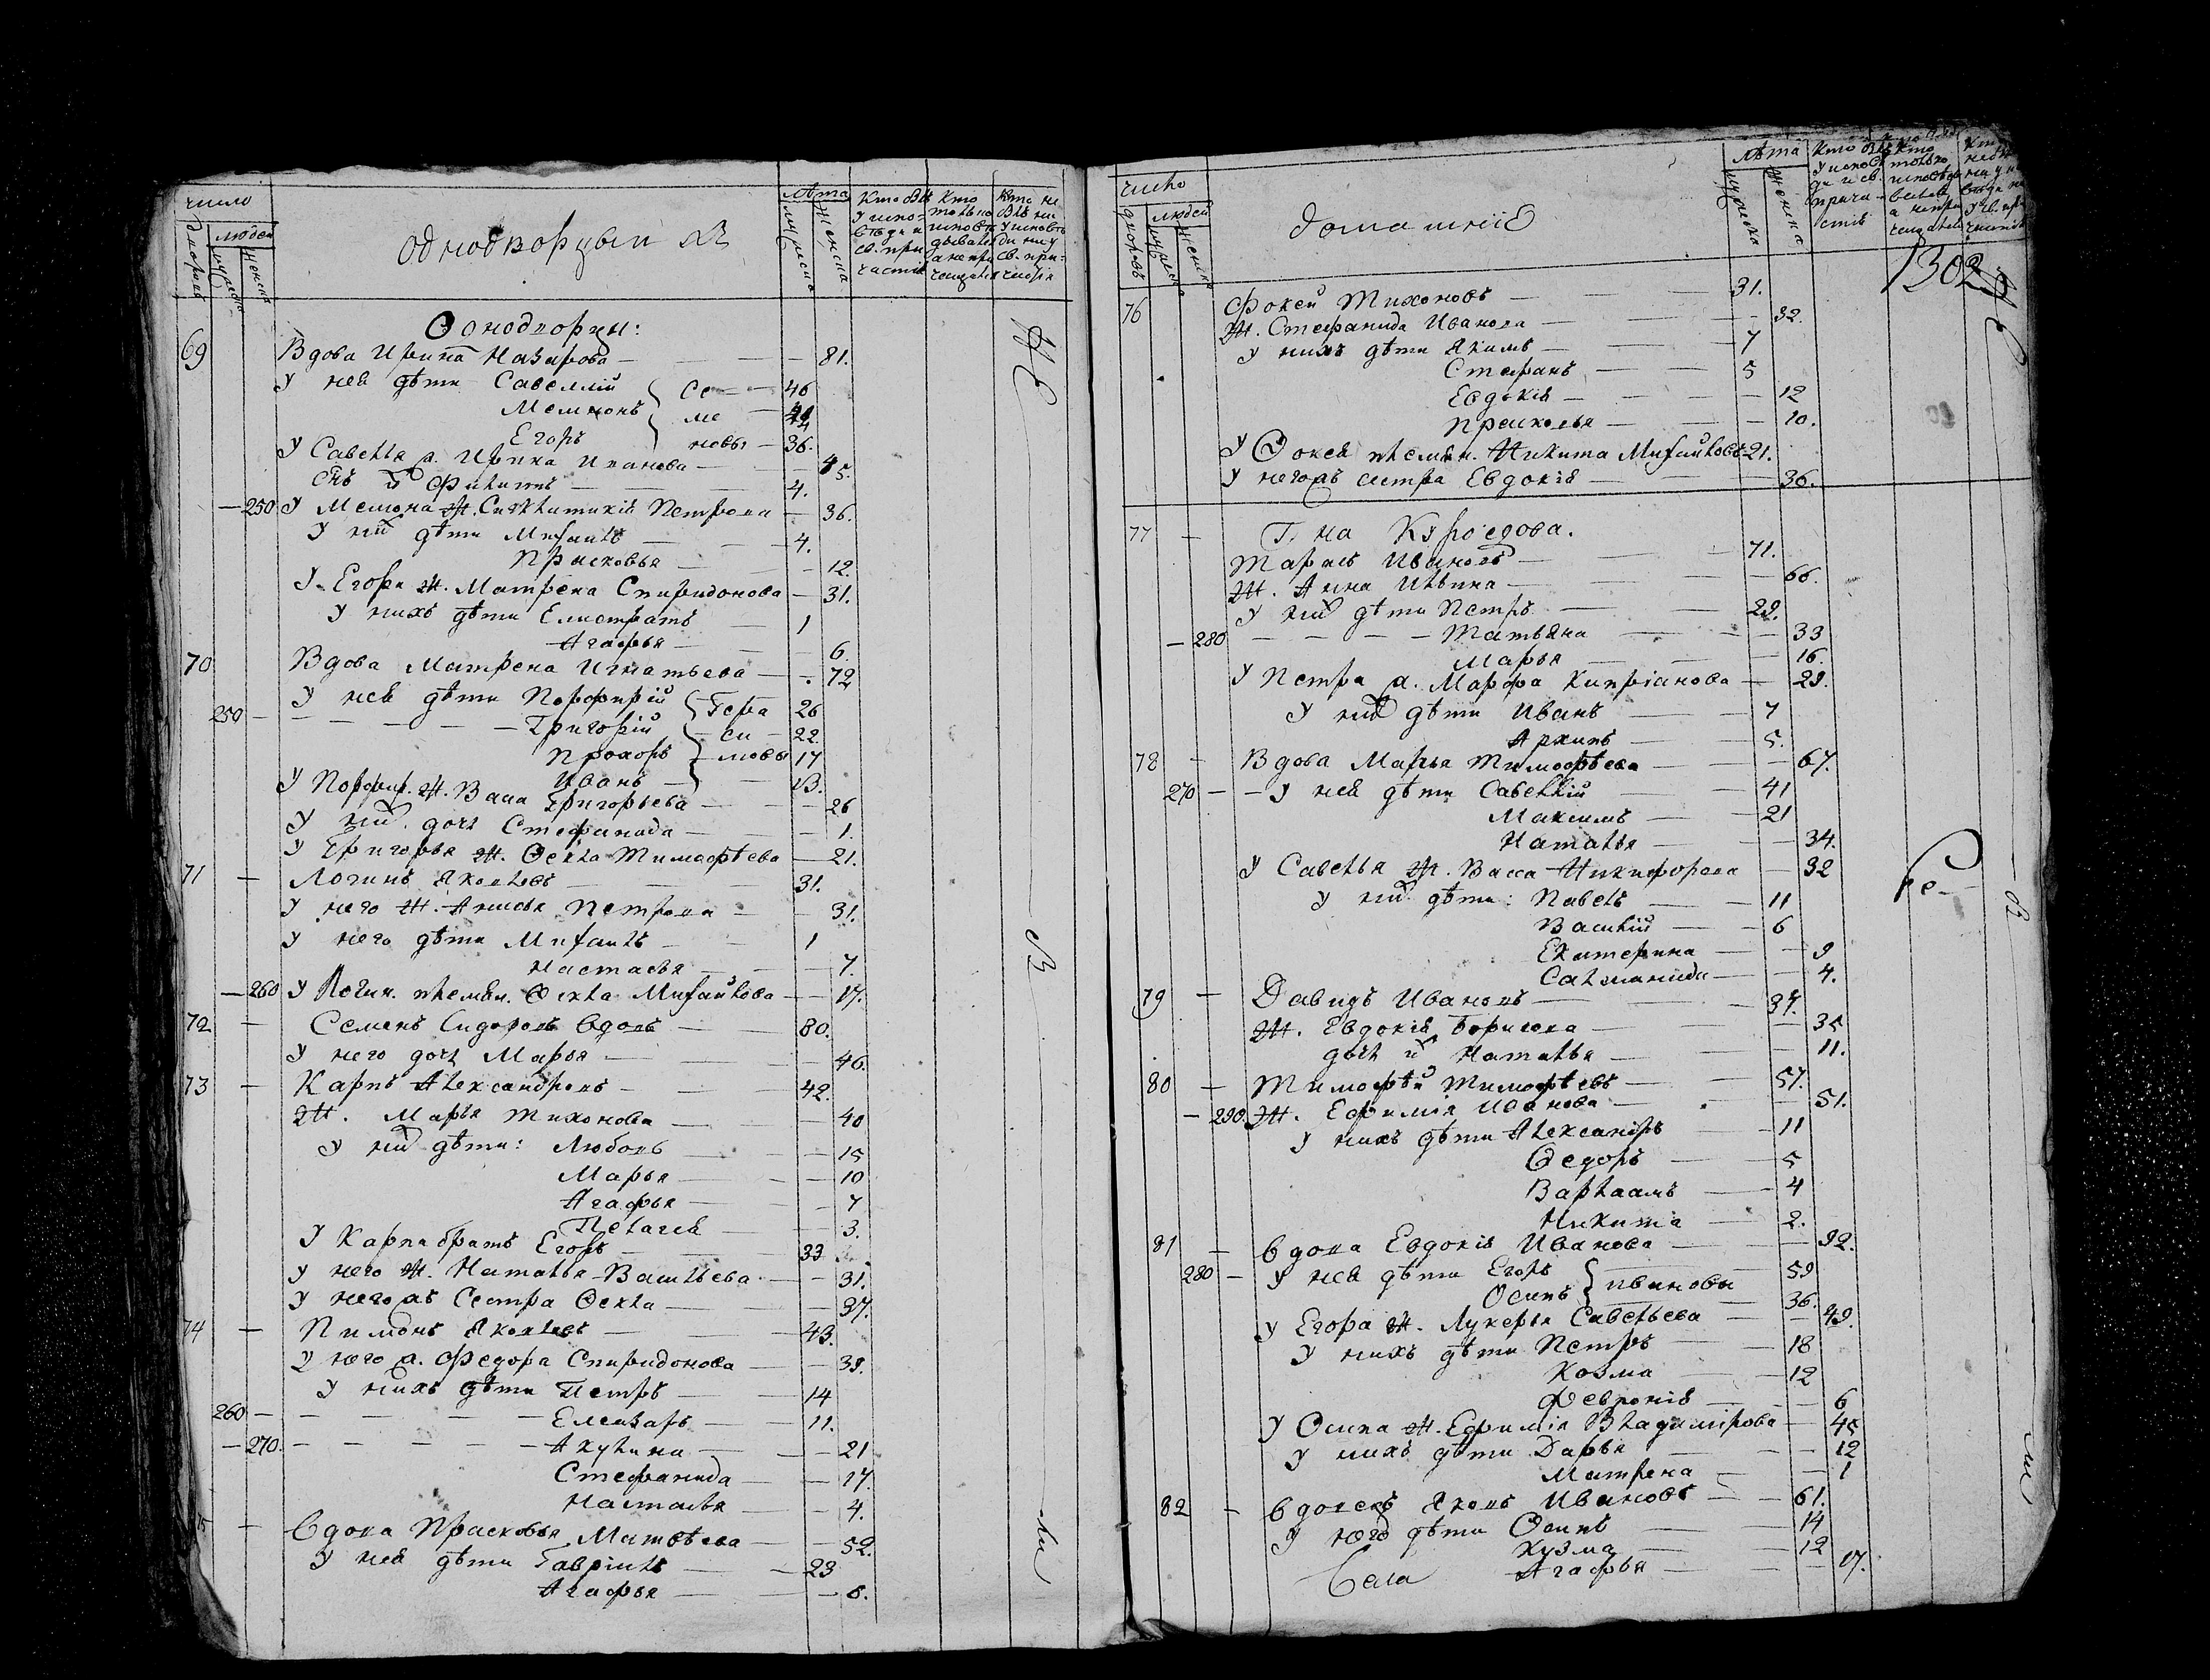 число
людей
дворовъ
мужеска
женска
однодворцы и
лѣта
мужеска
женска
Кто былъ у исповѣди и св. причастія
Кто только исповѣдывался а не причащался
Кто не былъ ни у исповѣди ни у св. причастія
Однодворцы:
69 Вдова Ирина Назарова — 81.
У нея дѣти Савеллій Се — 46
Мемнонъ ме —
Егоръ новы — 36.
У Савелья ж. Ирина Иванова — 45.
Снъ их Филиппъ — 4.
— 250 У Мемнона ж. Синклитикія Петрова — 36.
У них дѣти Михаилъ — 4.
Прасковья — 12.
У Егора ж. Матрена Спиридонова — 31.
У нихъ дѣти Елистратъ — 1
Агафья — 6.
70 Вдова Матрена Игнатьева — 72
У нея дѣти Порфирій Гера 26
250 — Григорій си — 22.
Прохоръ мовы 17
Иванъ — 13.
У Порфир. ж. Васа Григорьева — 26
У них дочь Стефанида — 1.
У Григорья ж. Ѳекла Тимоѳѣева — 21.
71 — Логинъ Яковлевъ — 31.
У него ж. Анисья Петрова — 31.
У него дѣти Михаилъ — 1
Настасья — 7.
— 260 У Логин. племян. Ѳекла Михайлова — 17.
72 — Семенъ Сидоровъ вдовъ — 80.
У него дочь Марья — 46.
73 — Карпъ Александровъ — 42.
Ж. Марья Тихонова — 40
У них дѣти: Любовь — 15
Марья — 10
Агафья — 7
Пелагея — 3.
У Карпа братъ Егоръ — 33
У него ж. Наталья Васильева — 31.
У него жъ Сестра Ѳекла — 37.
74 — Пимонъ Яковлевъ — 43.
У него ж. Федора Спиридонова — 39.
У нихъ дѣти Петръ — 14
260 — Елеазаръ — 11.
— 270. — Акулина — 21
Стефанида — 17.
Настасья — 4.
Вдова Прасковья Матвѣева — 52.
У нея дѣти Гавріилъ — 23
Агафья — 6.
число
людей
дворовъ
мужеска
женска
домашніе
лѣта
мужеска
женска
1302
76 Фокей Тихоновъ — 31.
Ж. Стефанида Иванова — 32.
У нихъ дѣти Якимъ — 7
Стефанъ — 5
Евдокія — 12
Прасковья — 10.
У Фокея племян. Никита Михайловъ 21.
У негожъ сестра Евдокія — 36.
77 — Г. на Куроедова.
Тарасъ Ивановъ — 71.
Ж. Анна Ильина — 66.
У них дѣти Петръ — 29.
— 280 — Татьяна — 33
Марья — 16.
У Петра ж. Марфа Кипріанова — 29.
У них дѣти Иванъ — 7
Архипъ — 5.
78 — Вдова Марья Тимофѣева — 67.
270 — У нея дѣти Савеллій — 41
Максимъ — 21
Наталья — 34.
У Савелья ж. Васса Никифорова — 32
У них дѣти: Павелъ — 11
Василій — 6
Екатерина — 9
Саломанида — 4.
79 — Давидъ Ивановъ — 37.
Ж. Евдокія Борисова — 35
дочь их Наталья — 11.
80 — Тимофѣй Тимофѣевъ — 57.
— 290. Ж. Ефимія Иванова — 51.
У нихъ дѣти Александръ — 11
Ѳедоръ — 5
Варлаамъ — 4
Никита — 2.
81 — вдова Евдокія Иванова — 92.
280 — У нея дѣти Егоръ — 59
Осипъ ивановы — 36.
У Егора ж. Лукерья Савельева — 49.
У нихъ дѣти Петръ — 18
Козма — 12
Февронія — 6
У Осипа ж. Ефимія Владимірова — 45
У нихъ дѣти Дарья — 12
Матрена — 1
82 — вдовецъ Яковъ Ивановъ — 61.
У него дѣти Осипъ — 14
Кузма — 12
Агафья — 17.
Села